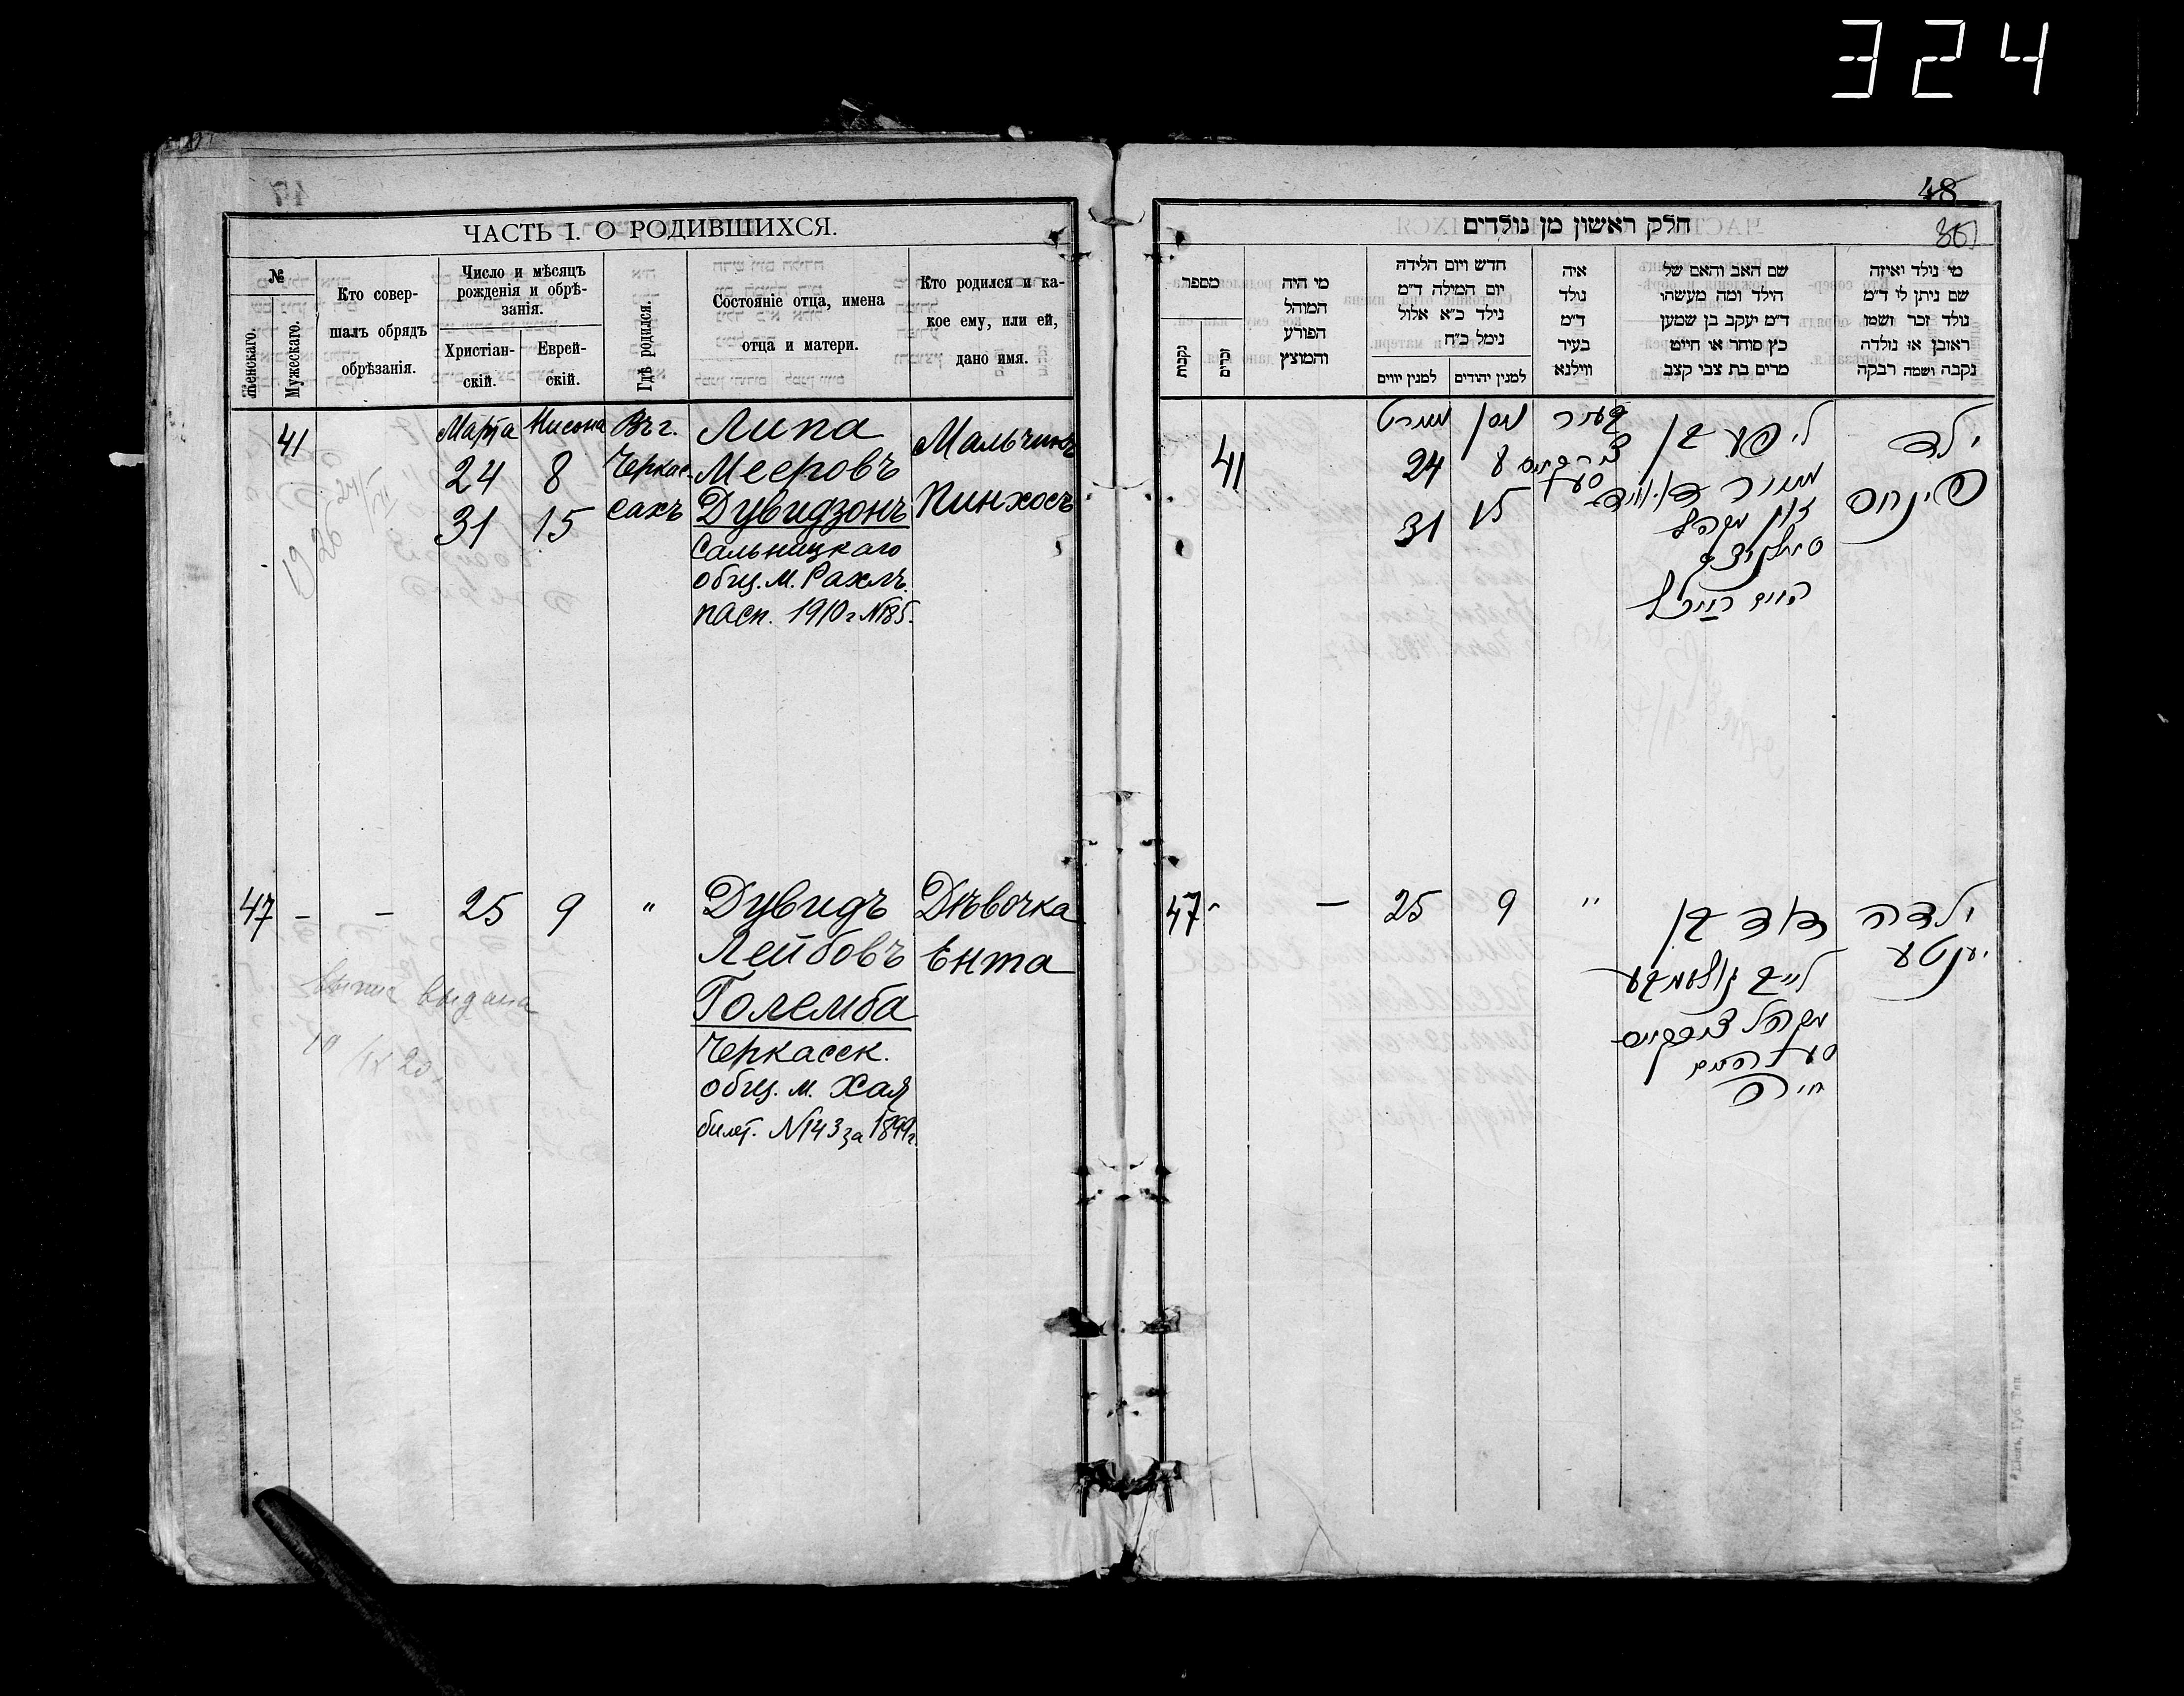 324
ЧАСТЬ I. О РОДИВШИХСЯ.
№
Женскаго.
Мужескаго.
Кто совер-
шалъ обрядъ
обрѣзанія.
Число и мѣсяцъ
рожденія и обрѣ-
занія.
Христіан-
скій.
Еврей-
скій.
Гдѣ родился.
Состояніе отца, имена
отца и матери.
Кто родился и ка-
кое ему, или ей,
дано имя.
41
Марта
24
31
Нисона
8
15
Въ г.
Черкас-
сахъ
Липа
Мееровъ
Дувидзонъ
Сальницкаго
общ. м. Рахль.
пасп. 1910 г №185.
Мальчикъ
Пинхосъ
1926
47 – – 25 9 "
Дувидъ
Лейбовъ
Големба
Черкасск.
общ. м. Хая
билет. №143 за 1899г.
Дѣвочка
Ента
выдана
48
חלק ראשון מן נולדים
מי נולד ואיזה
שם ניתן לו ד״מ
נולד זכר ושמו
ראובן או נולדה
נקבה ושמה רבקה
שם האב והאם של
הילד ומה מעשהו
ד״מ יעקב בן שמען
כץ סוחר או חייט
מרים בת צבי קצב
איה
נולד
ד״מ
בעיר
ווילנא
חדש ויום הלידה
יום המילה ד״מ
נילד כ״א אלול
נימל כ״ח
למנין יהודים
למנין יווים
מי היה
המוהל
הפורע
והמוצץ
מספר
זכרים
נקבות
ילד
פינחס
ליפע בן
מאיר דוידזאן
בעיר
ניסן
8
15
מארט
24
31
41
ילדה
יענטע
דוד בן
לייב גאלעמבע
"
9
25
–
47